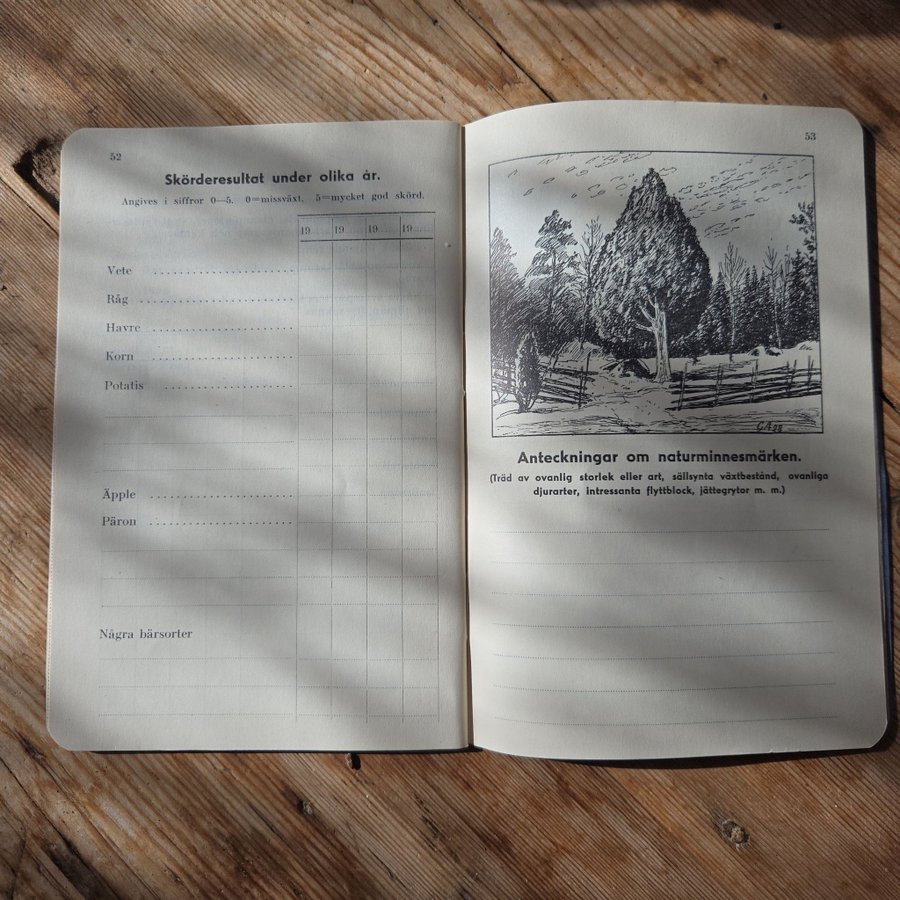 52
Skörderesultat under olika år.
Angives i siffror 0—5. 0=missväxt. 5=mycket god skörd.
19...... 19...... 19...... 19......
Vete
Råg
Havre
Korn
Potatis
Äpple
Päron
Några bärsorter
53
Anteckningar om naturminnesmärken.
(Träd av ovanlig storlek eller art, sällsynta växtbestånd, ovanliga
djurarter, intressanta flyttblock, jättegrytor m. m.)